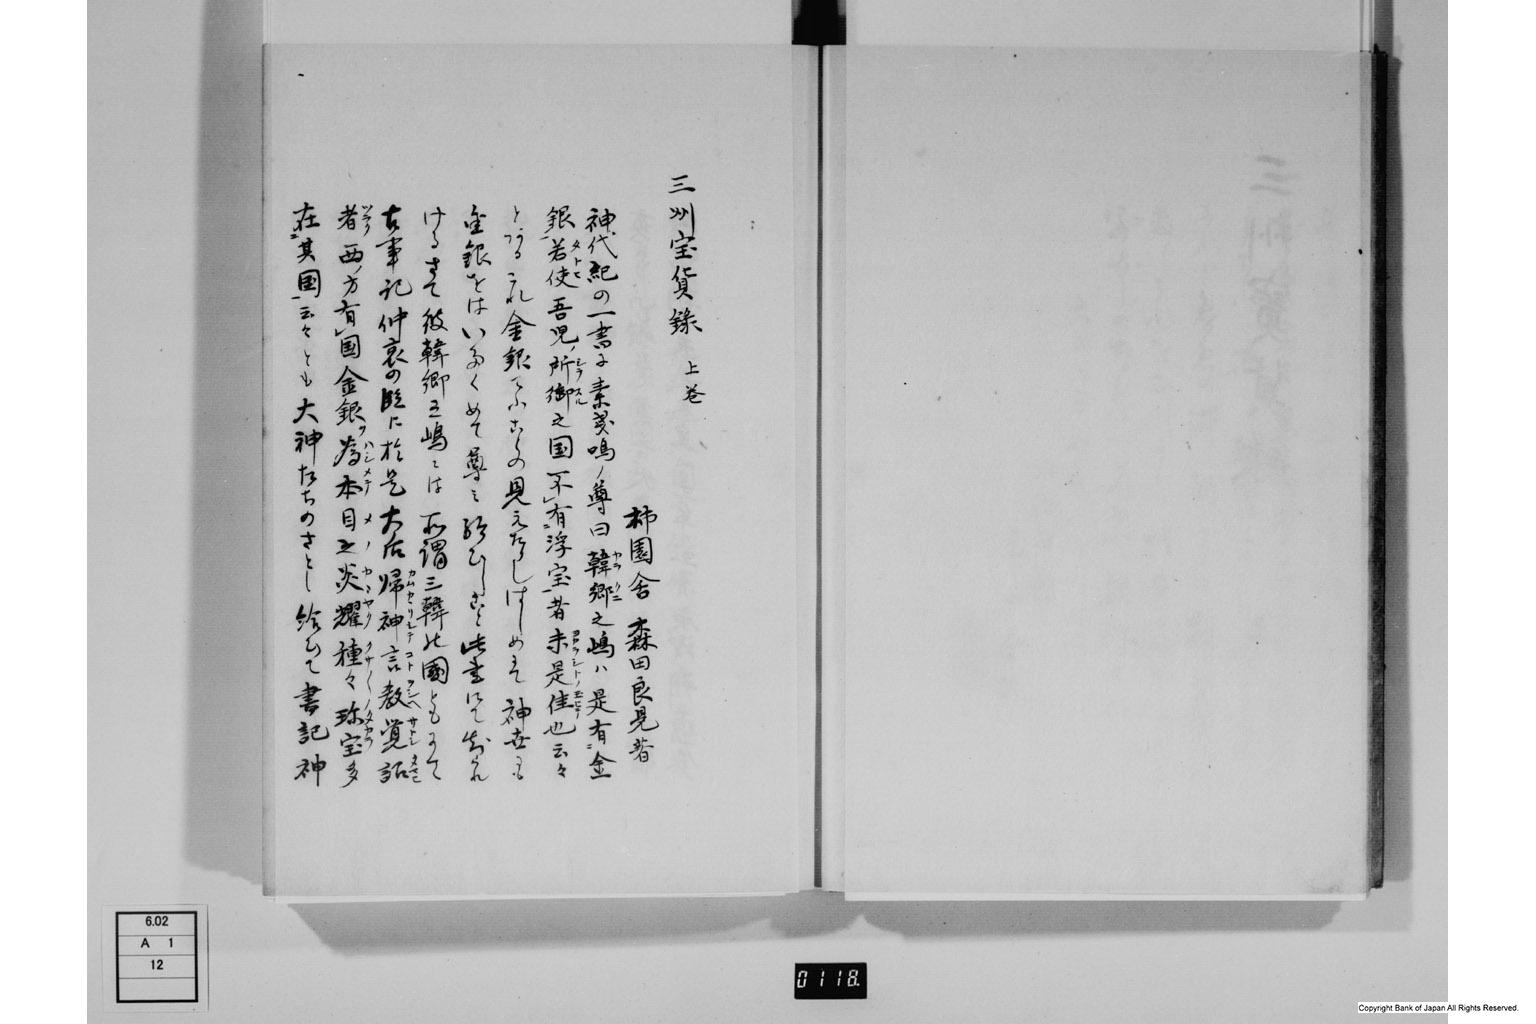 三州宝貨録 上巻
柿園舎 森田良見著
神代紀の一書に素戔嗚ノ尊曰韓郷之嶋ハ是有金
銀若使吾児ノ所御之国不有浮宝者未是佳也云々
とあるこれ金銀てふものゝ見えたるはしめにて神世にも
金銀をはいたくめて尊み給ひしこと此書にて知られ
けるさて彼韓郷之嶋とは所謂三韓の國ともにて
古事記仲哀の段に於是大后帰神言教覚詔
者西ノ方有国金銀為本目之炎耀種々珍宝多
在其国云々とも大神たちのさとし給ひて書記神
6.02
A 1
12
0118.
Copyright Bank of Japan All Rights Reserved.